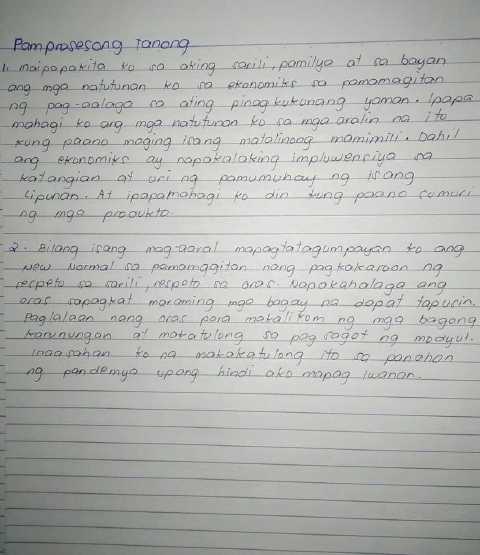 Pamprosesong Tanong
1. maipapakita ko sa aking sarili, pamilya at sa bayan
ang mga natutunan ko sa ekonomiks sa pamamagitan
ng pag-aalaga sa ating pinagkukunang yaman. Ipapa
mahagi ko ang mga natutunan ko sa mga aralin na ito
kung paano maging isang matalinong mamimili. Dahil
ang ekonomiks ay napakalaking impluwensiya sa
katangian at uri ng pamumuhay ng isang
Lipunan. At ipapamahagi ko din kung paano sumuri
ng mga produkto.
2. Bilang isang mag-aaral mapagtatagumpayan ko ang
New Normal sa pamamagitan nang pagkakaroon ng
respeto sa sarili, respeto sa oras. Napakahalaga ang
oras sapagkat maraming mga bagay na dapat tapusin.
Paglalaan nang oras para makalikom ng mga bagong
karunungan at makatulong sa pag sagot ng modyul.
Inaasahan ko na makakatulong ito sa panahon
ng pandemya upang hindi ako mapag iwanan.